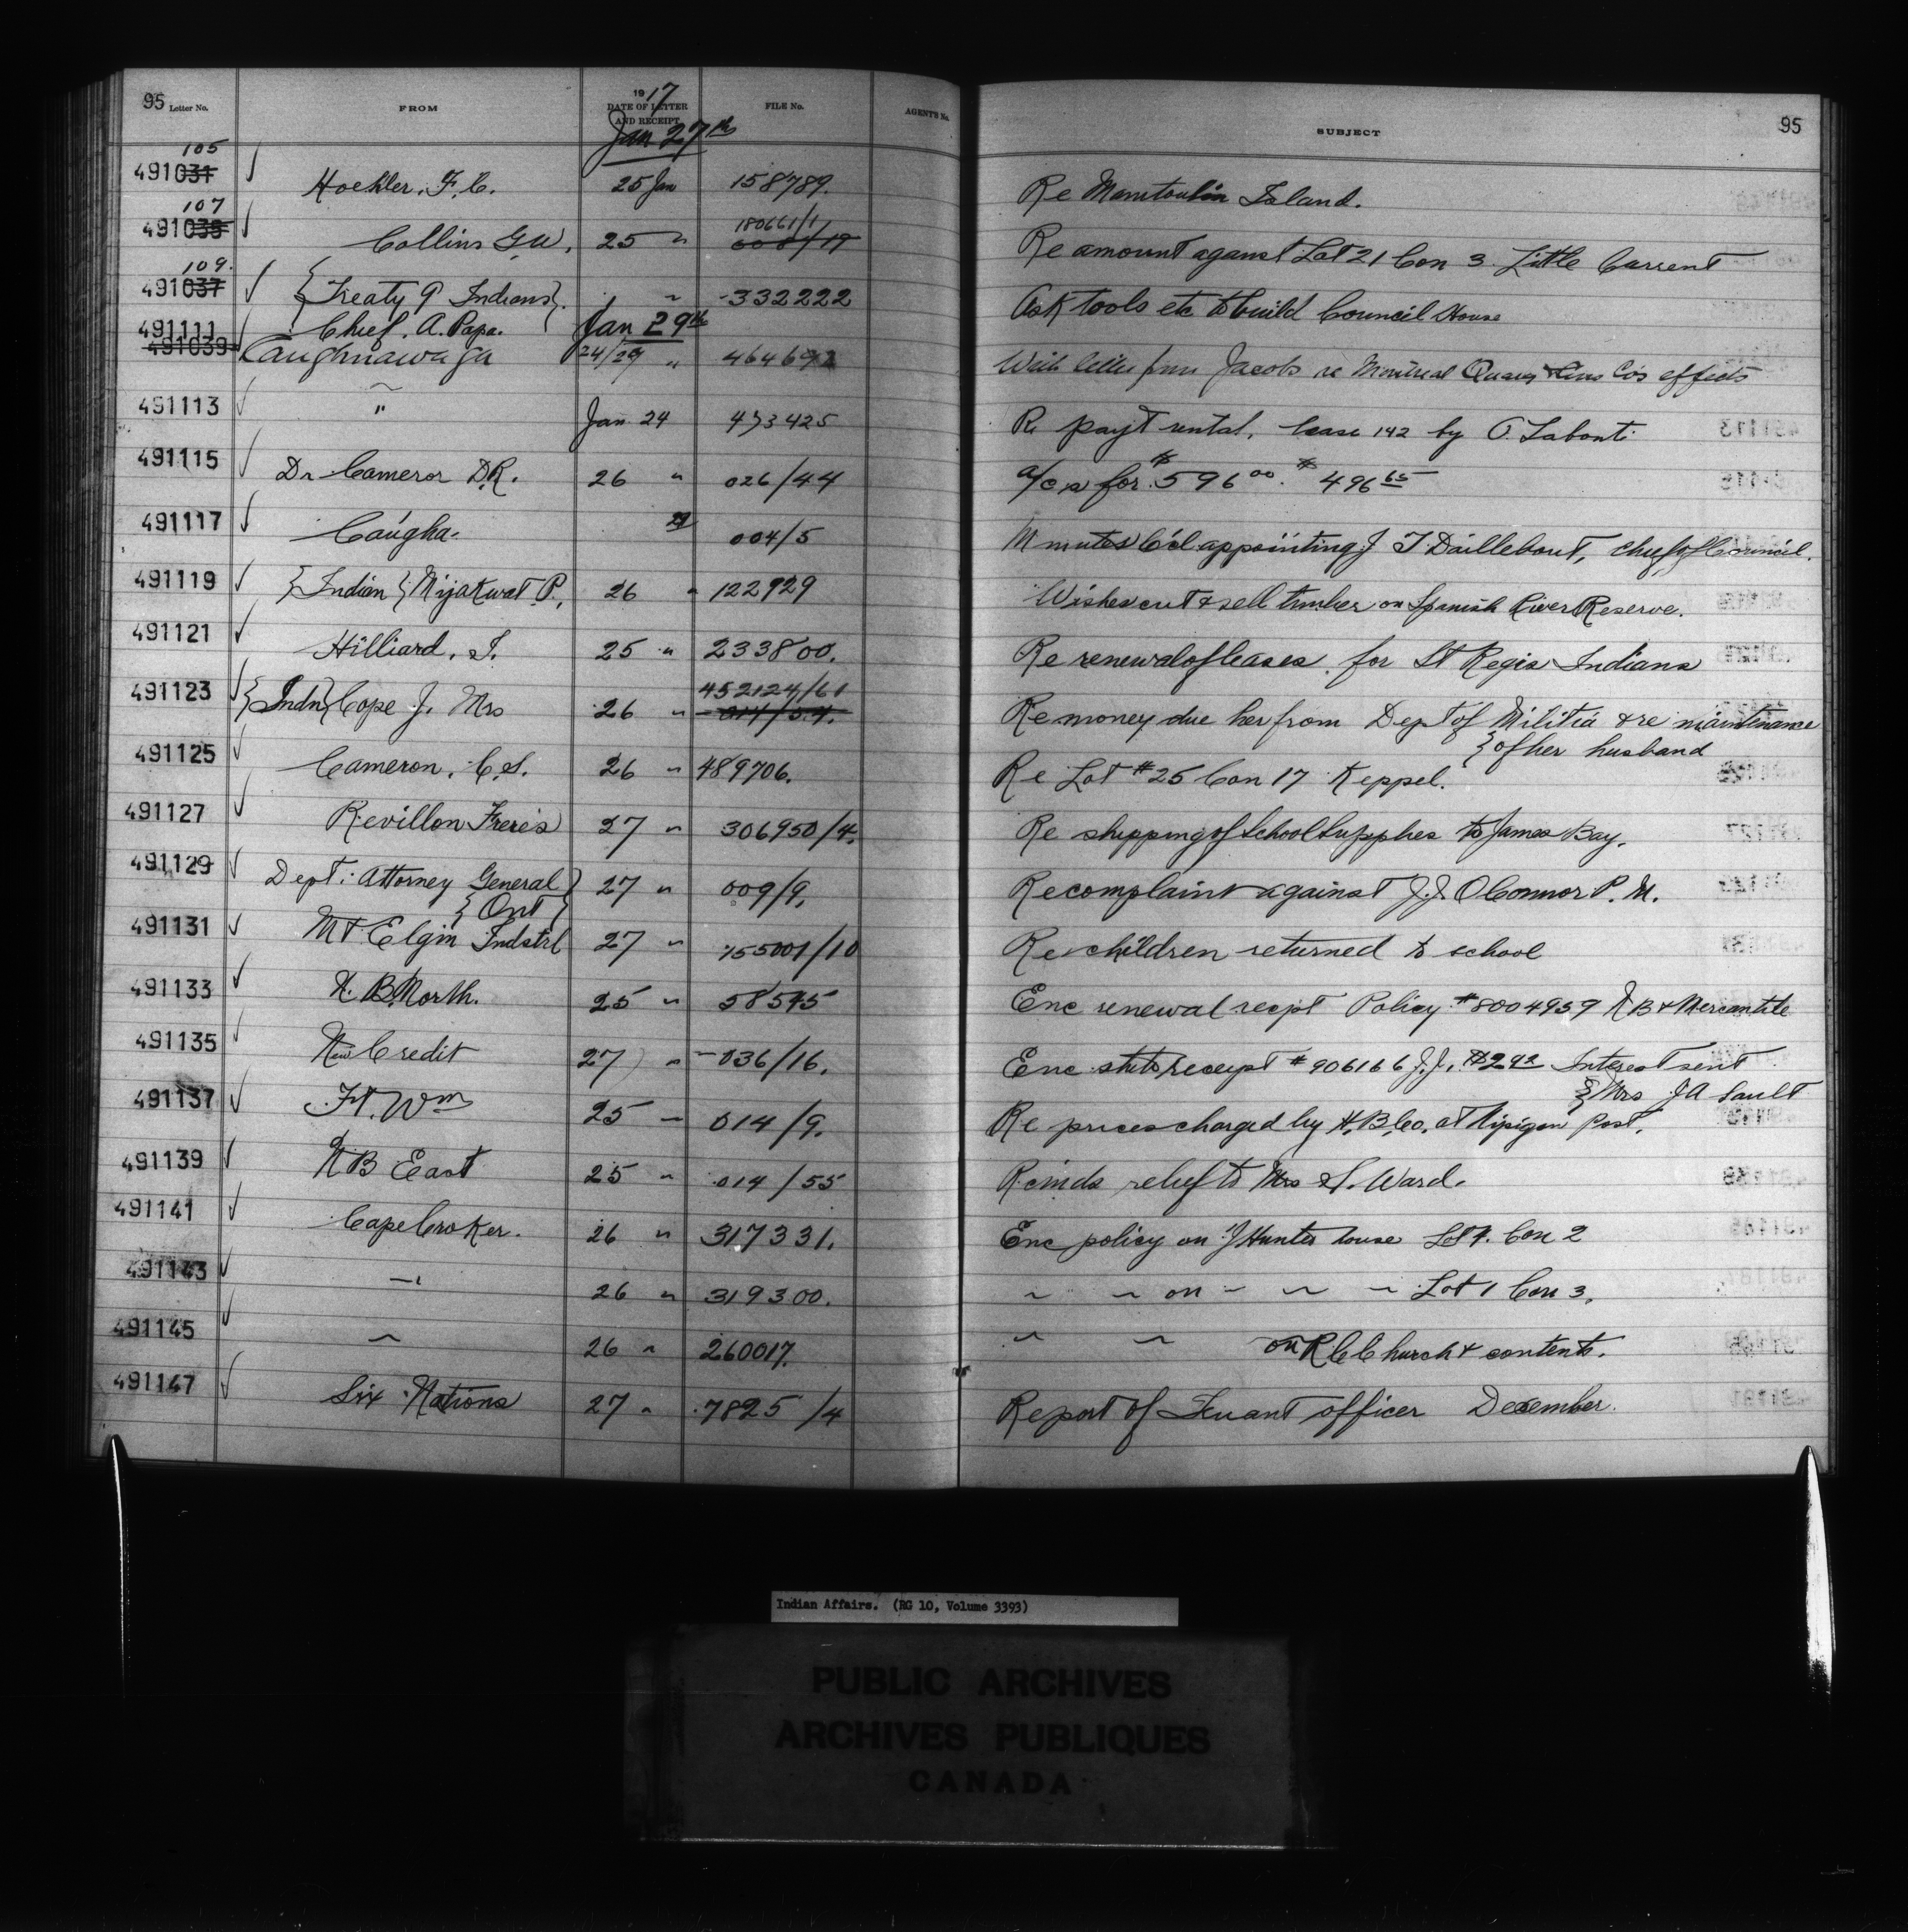 95 Letter No. FROM 1917 DATE OF LETTER AND RECEIPT FILE No. AGENT'S No. SUBJECT 95
Jan 27th
105
491031 Hoehler, F. C. 25 Jan 158789. Re Manitoulin Island.
107
180661/1
491035 Collins G.W. 25 " Re amount against Lot 21 Con 3. Little Current
109.
491037 {Treaty 9 Indians}. " 332222 Ask tools etc to build Council House
491111 Chief. A. Papa. Jan 29th
491039 Caughnawaga 24/29 " With letter from Jacobs re Montreal Co's effects
491113 " Jan 24 473425 Re payt rental, lease 142 by O. Labonti
491115 Dr Cameron D.R. 26 " 026/44 a/cs for $596 00. $496 65
491117 Caugha. 004/5 Minutes C'cl appointing J T Daillebout, chief of Council.
491119 {Indian} Nijakwat P. 26 " 122929 Wishes cut & sell timber on Spanish River Reserve.
491121 Hilliard, I. 25 " 233800. Re renewal of leases for St Regis Indians
452124/61
491123 {Indn} Cope J. Mrs 26 " 014/54. Re money due her from Dept of Militia & re maintenance
} of her husband
491125 Cameron, C.S. 26 " 489706. Re Lot #25 Con 17 Keppel.
491127 Revillon Freres 27 " 306950/4. Re shipping of School Supplies to James Bay.
491129 Dept: Attorney General} 27 " 009/9. Re complaint against J.J. O'Connor P. M.
{Ont}
491131 Mt Elgin Indstrl 27 " 155001/10 Re children returned to school
491133 N. B. North. 25 " 58575 Enc renewal recpt Policy #8004959 N B & Mercantile
491135 New Credit 27 " 036/16. Enc receipt #906166 J.J. $2.92 Interest sent
} Mrs J A Sault
491137 Ft. Wm 25 " 014/9. Re prices charged by H.B.Co. at Nipigon Post.
491139 N B East 25 " 014/55 Reinds relief to Mrs S. Ward.
491141 Cape Croker. 26 " 317331. Enc policy on J Hunter house Lot 4. Con 2
491143 " 26 " 319300. " " on " " " Lot 1 Con 3.
491145 " 26 " 260017. " " on R C Church & contents.
491147 Six Nations 27 " 7825/4 Report of Truant officer December.
Indian Affairs. (RG 10, Volume 3393)
PUBLIC ARCHIVES
ARCHIVES PUBLIQUES
CANADA